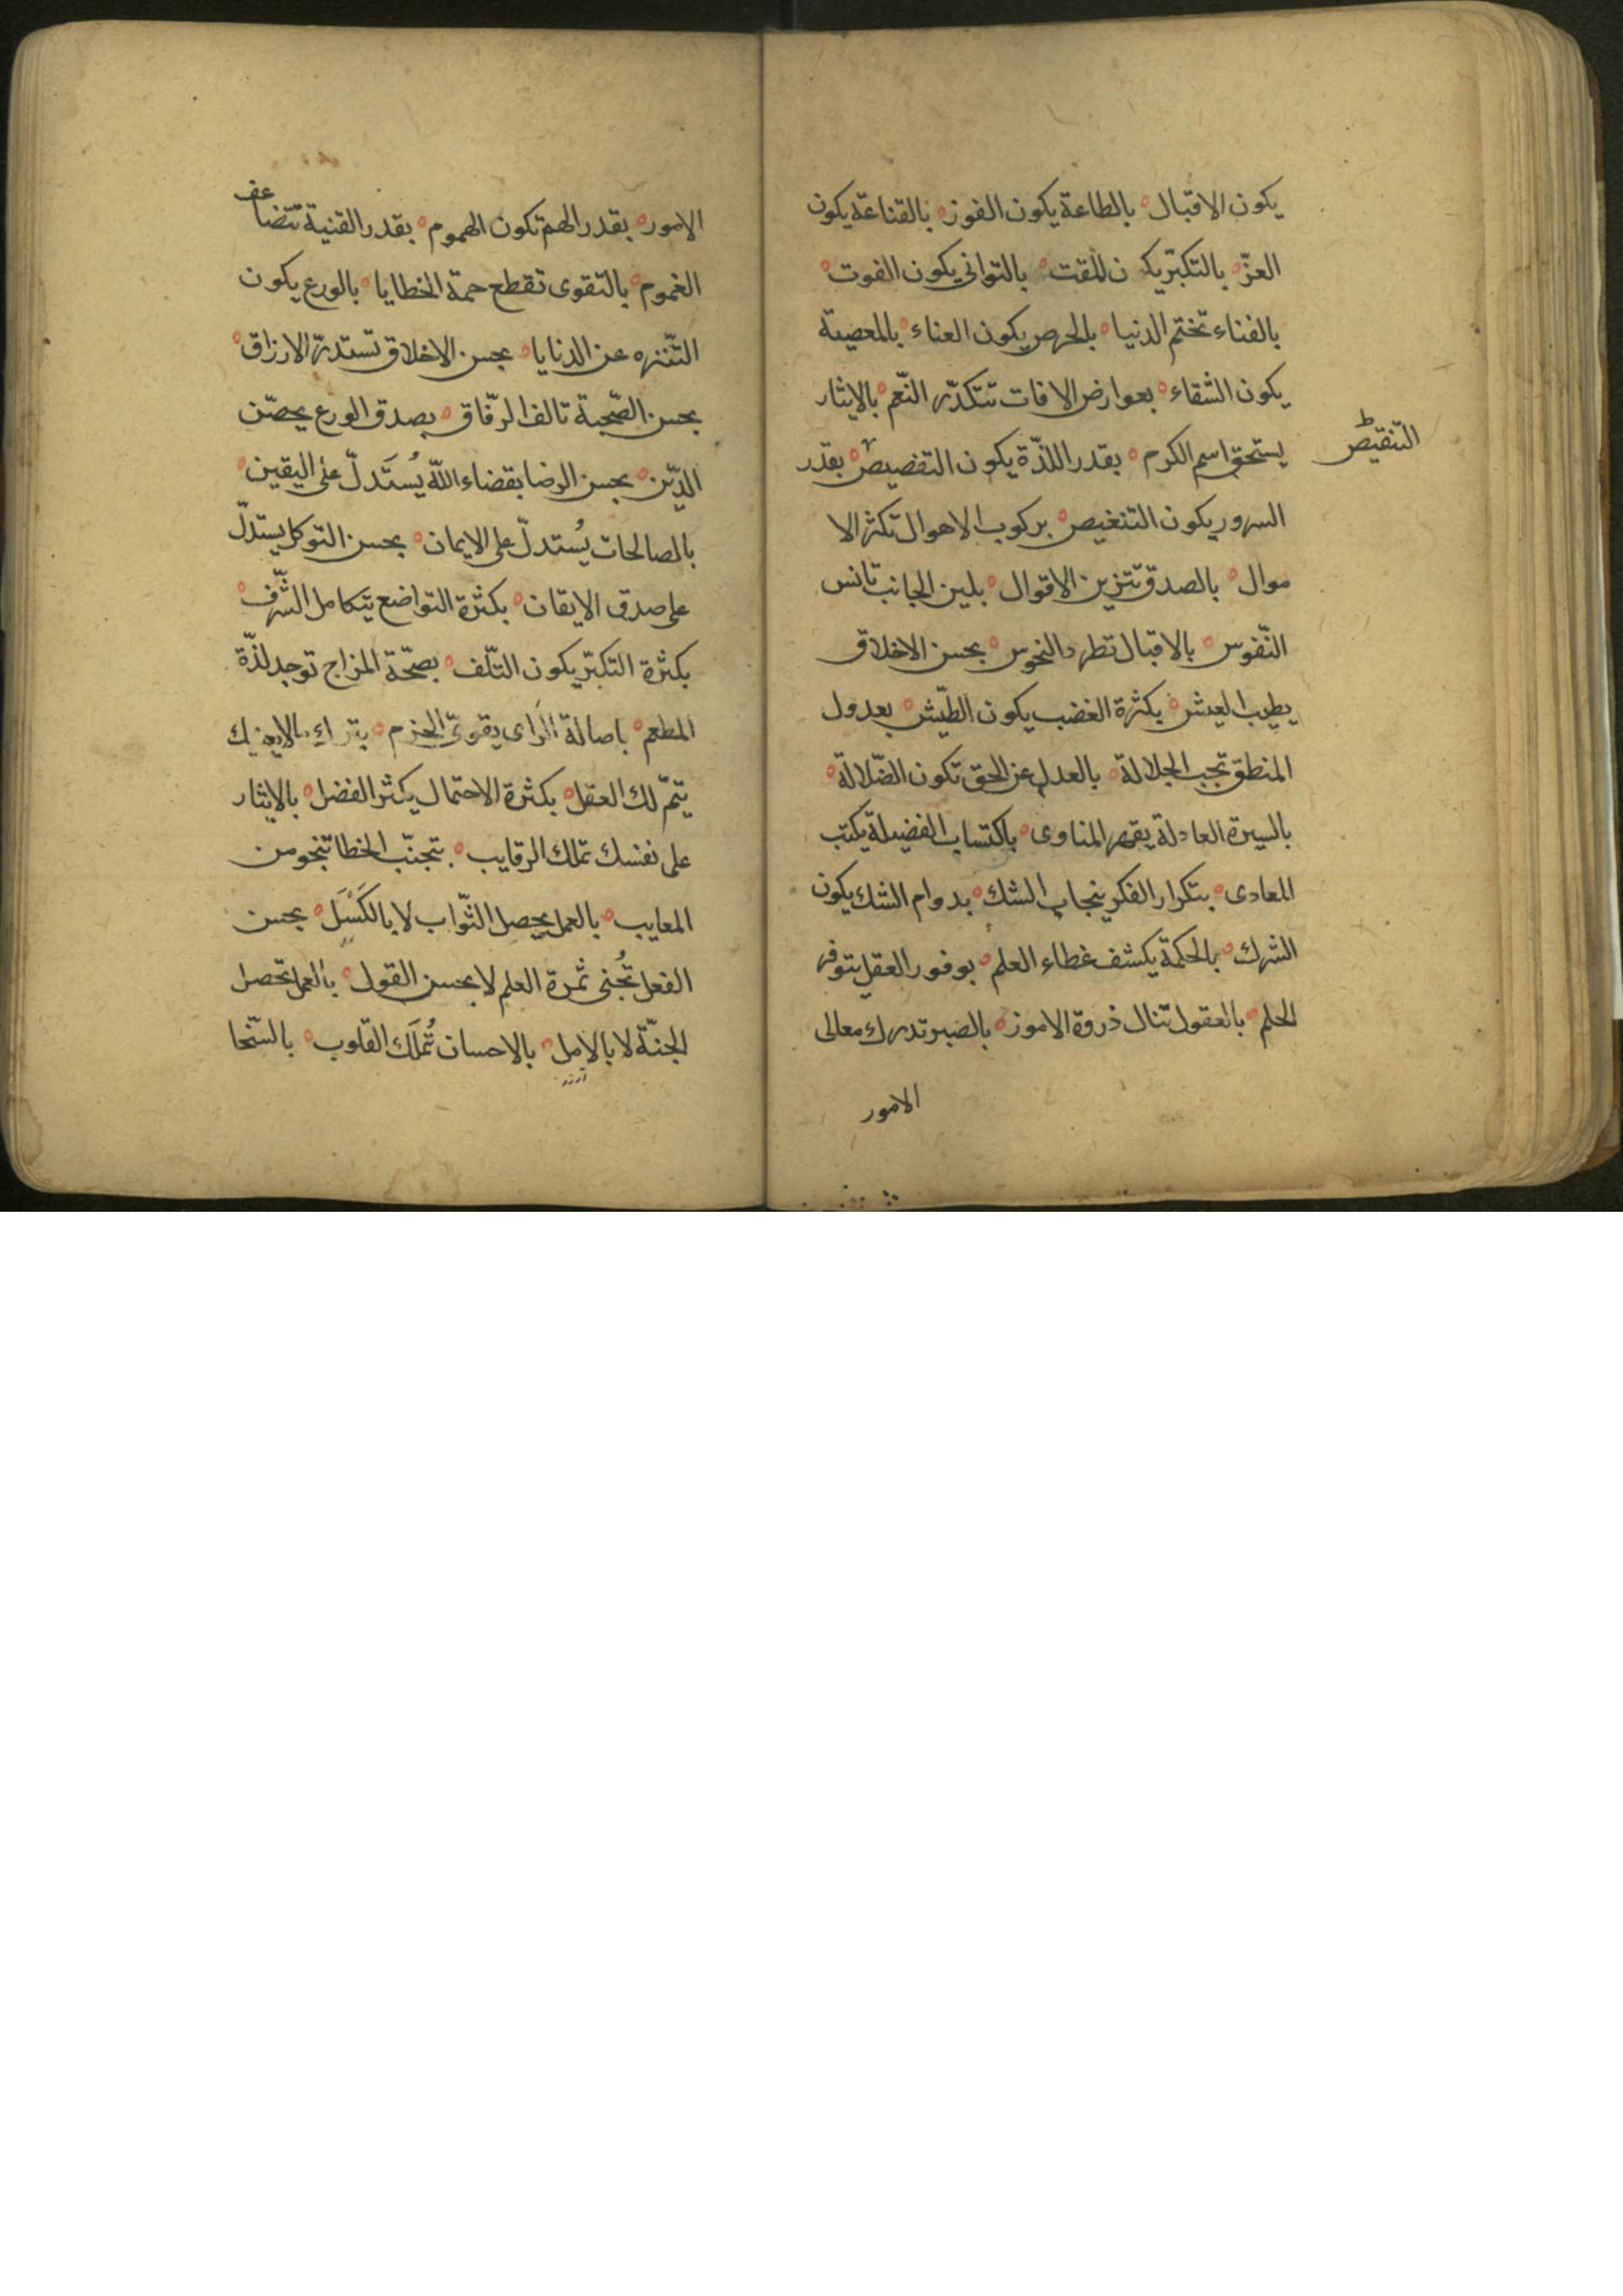 يكون الاقبال ه بالطاعة يكون الفوز ه بالقناعة يكون
العزّ ه بالتكبّر يكون المقت ه بالتوانى يكون الفوت ه
بالفناء تختم الدنيا ه بالحرص يكون العناء ه بالمعصية
يكون الشقاء ه بعوارض الافات تتكدّر النّعم ه بالايثار
يستحق اسم الكرم ه بقدر اللذّة يكون التغصيص ه بقدر
التنقيص
السرور يكون التنغيص ه بركوب الاهوال تكثر الا
موال ه بالصدق تتزين الاقوال ه بلين الجانب تانس
النّفوس ه بالاقبال تطرد النحوس ه بحسن الاخلاق
يطيب العيش ه بكثرة الغضب يكون الطّيش ه بعدول
المنطق تجب الجلالة ه بالعدل عن الحق تكون الضّلالة ه
بالسيرة العادلة يقهر المناوى ه باكتساب الفضيلة يكبت
المعادى ه بتكرار الفكر ينجاب الشك ه بدوام الشك يكون
الشرك ه بالحكمة يكشف غطاء العلم ه بوفور العقل يتوفر
الحلم ه بالعقول تنال ذروة الامور ه بالصبر تدرك معالى
الامور
الامور ه بقدر الهمم تكون الهموم ه بقدر القنية تتضاعف
الغموم ه بالتقوى تقطع حمة الخطايا ه بالورع يكون
التّنزه عن الدنايا ه بحسن الاخلاق تستدرّ الارزاق ه
بحسن الصّحبة تالف الرّفاق ه بصدق الورع يحصّن
الدّين ه بحسن الرضا بقضاء الله يُستَدلّ على اليقين ه
بالصالحات يُستدلّ على الايمان ه بحسن التوكل يستدلّ
على صدق الايقان ه بكثرة التواضع يتكامل الشّرف ه
بكثرة التكبّر يكون التّلف ه بصحّة المزاج توجد لذّة
المطعم ه باصالة الرَاى يقوىّ الحزم ه بترك مالا يعنيك
يتمّ لك العقل ه بكثرة الاحتمال يكثر الفضل ه بالايثار
على نفسك تملك الرقاب ه بتجنّب الخطا تنجو من
المعايب ه بالعمل يحصل الثّواب لا بالكَسَل ه بحسن
الفعل تُجنى ثمرة العلم لا بحسن القول ه بالعمل تحصل
الجنّة لا بالامل ه بالاحسان تُملَك القلوب ه بالسّخا